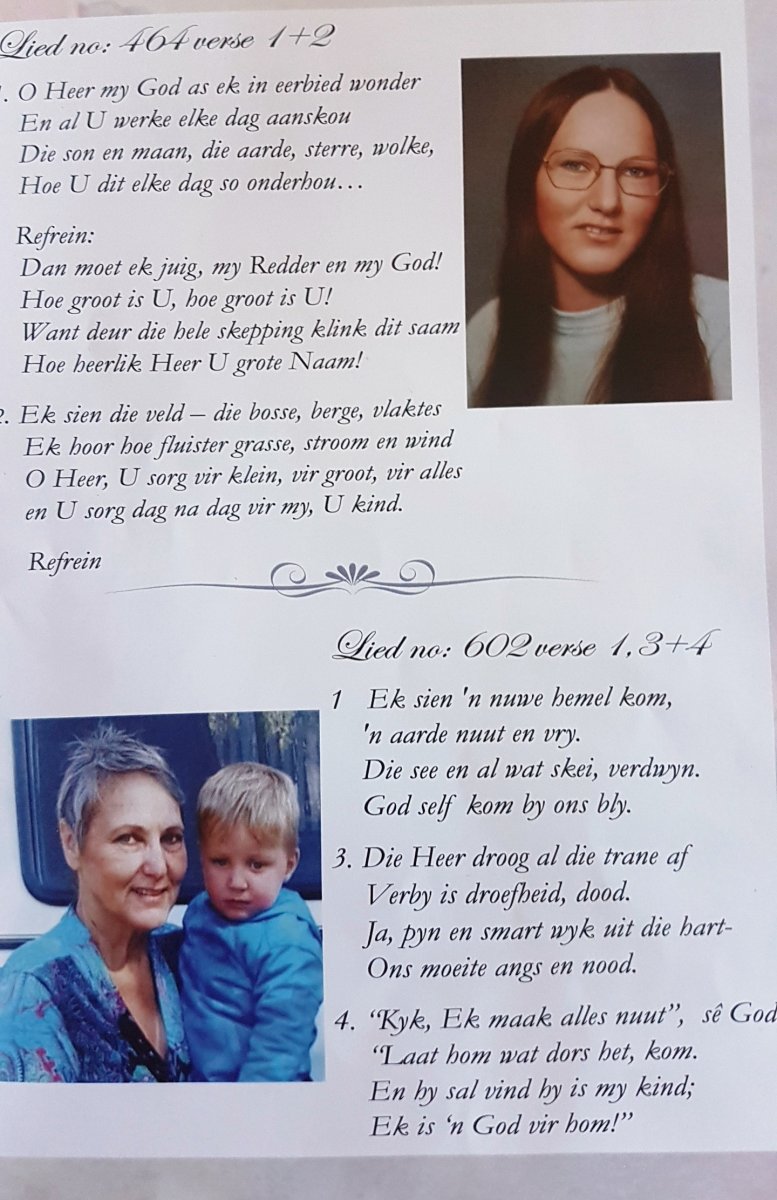 Lied no: 464 verse 1+2
. O Heer my God as ek in eerbied wonder
En al U werke elke dag aanskou
Die son en maan, die aarde, sterre, wolke,
Hoe U dit elke dag so onderhou...
Refrein:
Dan moet ek juig, my Redder en my God!
Hoe groot is U, hoe groot is U!
Want deur die hele skepping klink dit saam
Hoe heerlik Heer U grote Naam!
2. Ek sien die veld – die bosse, berge, vlaktes
Ek hoor hoe fluister grasse, stroom en wind
O Heer, U sorg vir klein, vir groot, vir alles
en U sorg dag na dag vir my, U kind.
Refrein
Lied no: 602 verse 1,3+4
1 Ek sien 'n nuwe hemel kom,
'n aarde nuut en vry.
Die see en al wat skei, verdwyn.
God self kom by ons bly.
3. Die Heer droog al die trane af
Verby is droefheid, dood.
Ja, pyn en smart wyk uit die hart-
Ons moeite angs en nood.
4. “Kyk, Ek maak alles nuut”, sê God
“Laat hom wat dors het, kom.
En hy sal vind hy is my kind;
Ek is ‘n God vir hom!”